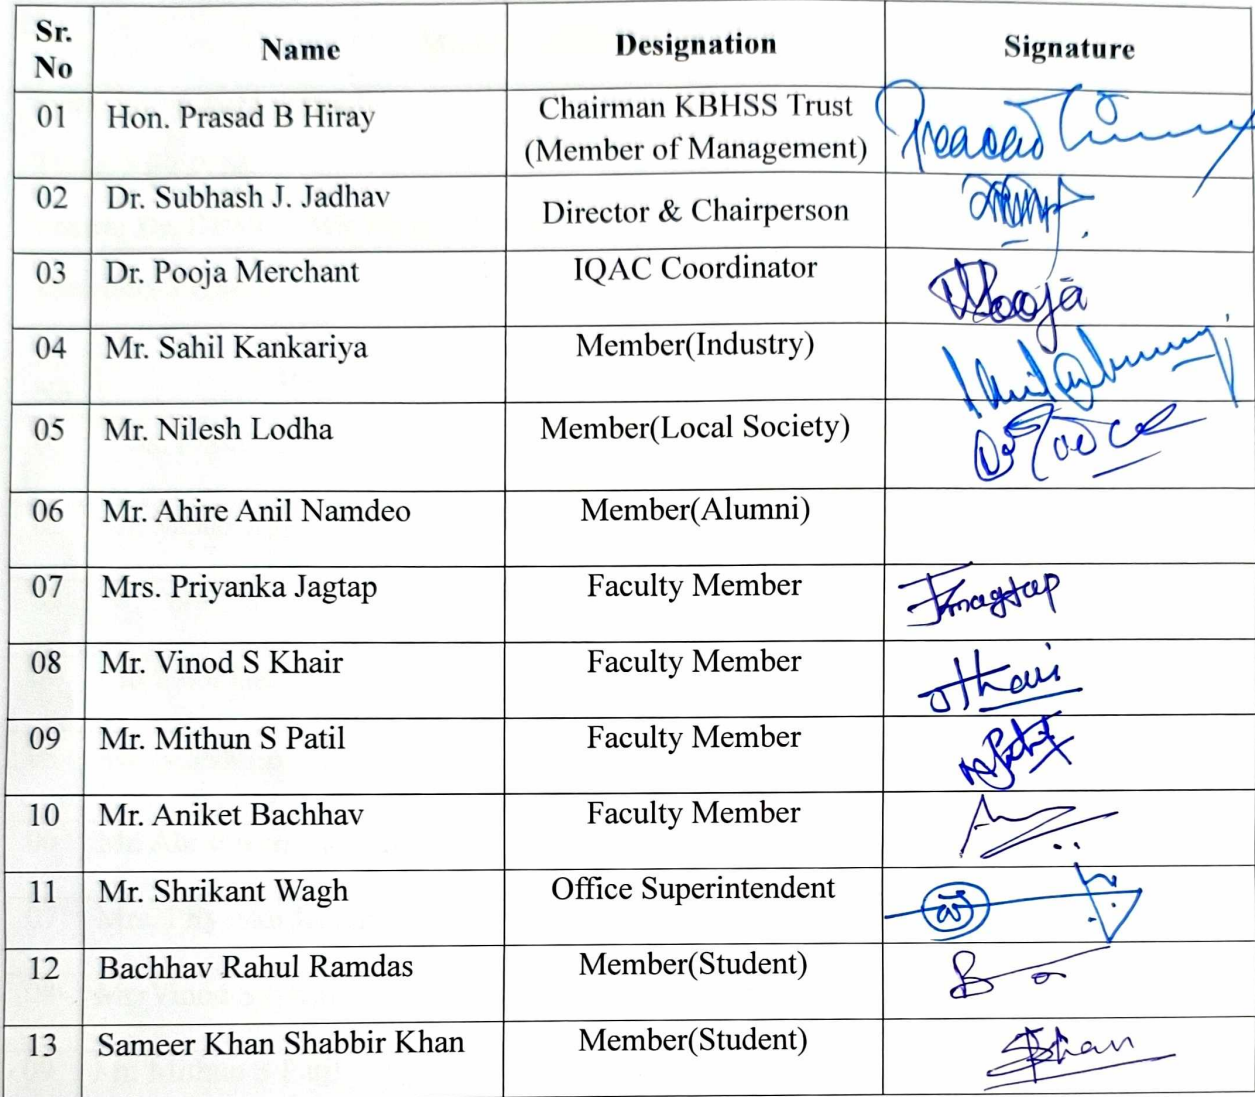 Sr. No Name Designation Signature
01 Hon. Prasad B Hiray Chairman KBHSS Trust
(Member of Management)
02 Dr. Subhash J. Jadhav Director & Chairperson
03 Dr. Pooja Merchant IQAC Coordinator Pooja
04 Mr. Sahil Kankariya Member(Industry)
05 Mr. Nilesh Lodha Member(Local Society)
06 Mr. Ahire Anil Namdeo Member(Alumni)
07 Mrs. Priyanka Jagtap Faculty Member
08 Mr. Vinod S Khair Faculty Member
09 Mr. Mithun S Patil Faculty Member
10 Mr. Aniket Bachhav Faculty Member
11 Mr. Shrikant Wagh Office Superintendent
12 Bachhav Rahul Ramdas Member(Student)
13 Sameer Khan Shabbir Khan Member(Student)